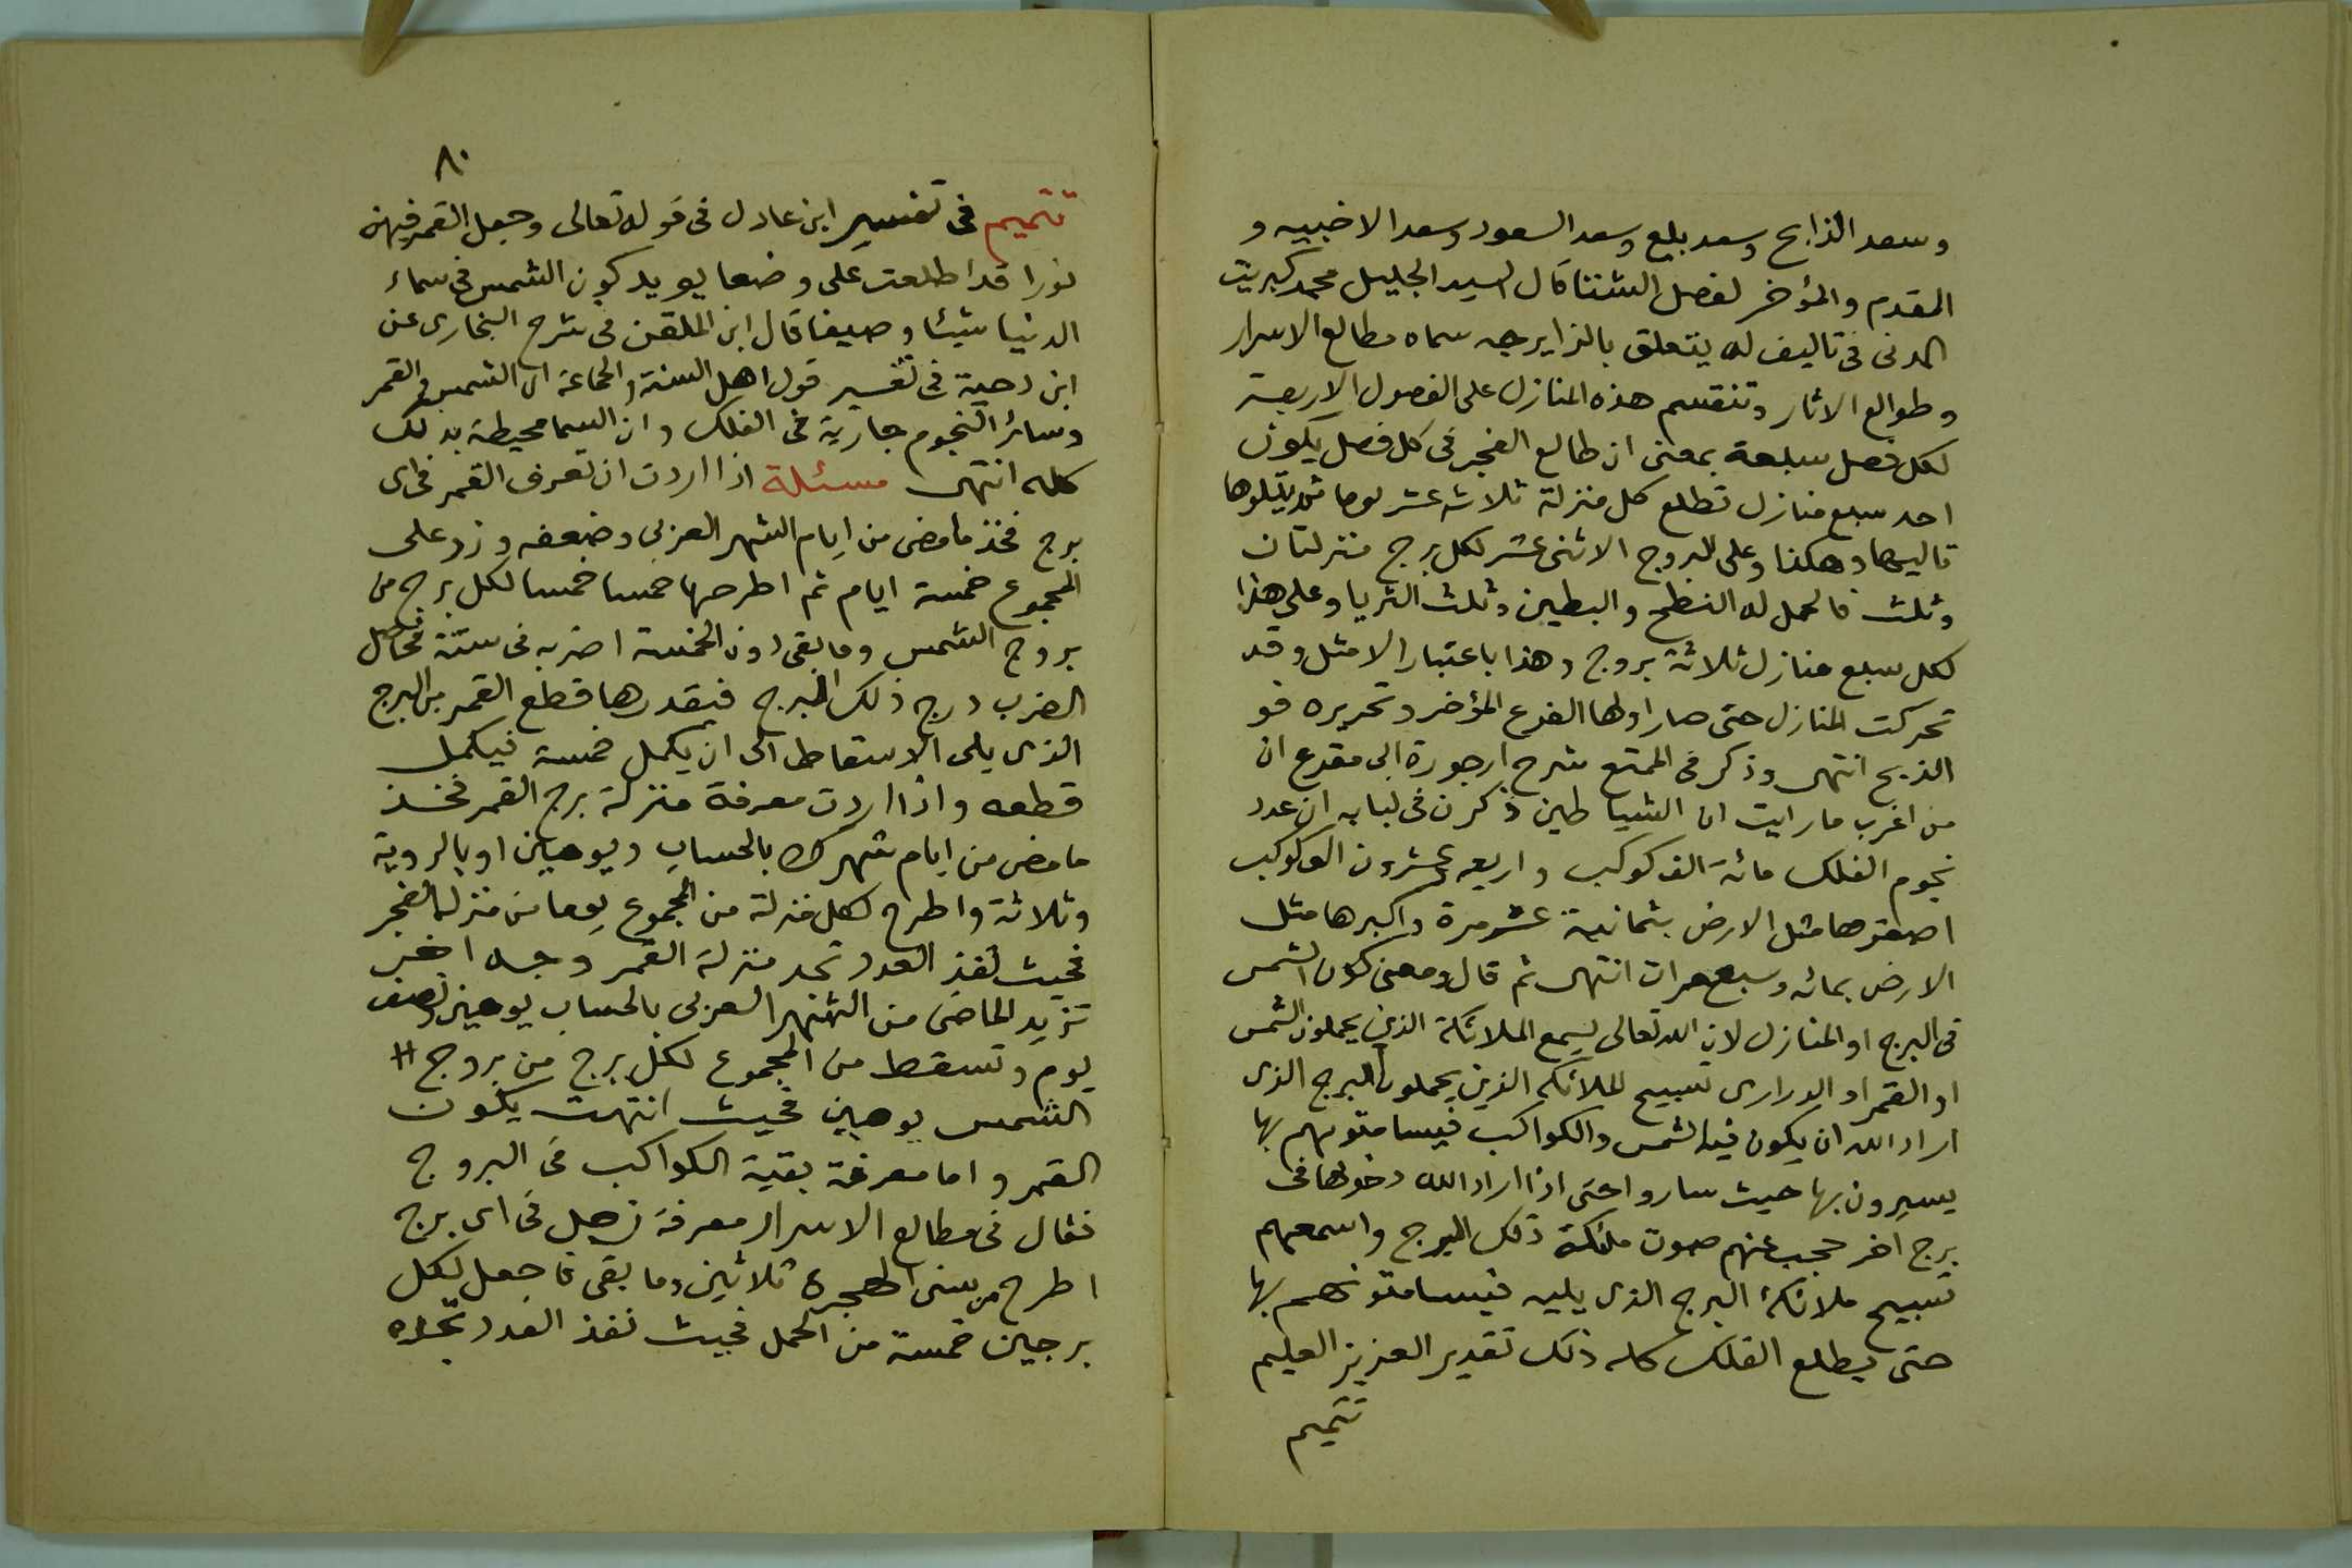 وسعد الذابح وسعد بلع وسعد السعود وسعد الاخبيه و
المقدم والمؤخر لفصل الشتا قال السيد الجليل محمد كبريت
المدنى فى تاليف له يتعلق بالزايرجه سماه مطالع الاسرار
وطوالع الاثار وتنقسم هذه المنازل على الفصول الاربعة
لكل فصل سبعة بمعنى ان طالع الفجر فى كل فصل يكون
احد سبع منازل تطلع كل منزلة ثلاثه عشر يوما ثم يتلوها
تاليها وهكذا وعلى البروج الاثنى عشر لكل برج منزلتان
وثلث فالحمل له النطح والبطين وثلث الثريا وعلى هذا
لكل سبع منازل ثلاثة بروج وهذا باعتبار الامثل وقد
تحركت المنازل حتى صار اولها الفرع المؤخر وتحريره فو
الذبح انتهى وذكر فى الممتع شرح ارجوزة ابى مقرع ان
من اغرب ما رايت ان الشياطين ذكرن فى لبابه ان عدد
نجوم الفلك مائة الف كوكب واربعه عشرون الف كوكب
اصغرها مثل الارض بثمانية عشر مرة واكبرها مثل
الارض بمائه وسبع مرات انتهى ثم قال ومعنى كون الشمس
فى البرج او المنازل لان الله تعالى يسمع الملائكة الذين يحملون الشمس
او القمر او الدرارى تسبيح الملائكه الذين يحملون البرج الذى
اراد الله ان يكون فيه الشمس والكواكب فيسامتونهم بها
يسيرون بها حيث ساروا حتى اذا اراد الله دخولها فى
برج اخر حجب عنهم صوت ملئكة ذلك البرج واسمعهم
تسبيح ملائكة البرج الذى يليه فيسامتونهم بها
حتى يطلع الفلك كله ذلك تقدير العزيز العليم
تتميم
٨٠
تتميم فى تفسير ابن عادل فى قوله تعالى وجعل القمر فيهن
نورا قد اطلعت على وضعا يويد كون الشمس فى سماء
الدنيا شيئا وصيفا قال ابن الملقن فى شرح البخارى عن
ابن دحية فى تفسير قول اهل السنة والجماعة ان الشمس والقمر
وسائر النجوم جارية فى الفلك وان السما محيطة بذلك
كله انتهى مسئلة اذا اردت ان تعرف القمر فى اى
برج فخذ ما مضى من ايام الشهر العربى وضعفه وزد على
المجموع خمسة ايام ثم اطرحها خمسا خمسا لكل برج من
بروج الشمس وما بقى دون الخمسة اضربه فى ستة فحاصل
الضرب درج ذلك البرج فبقدرها قطع القمر من البرج
الذى يلى الاسقاط الى ان يكمل خمسة فيكمل
قطعه واذا اردت معرفة منزلة برج القمر فخذ
ما مضى من ايام شهرك بالحساب ويومين او بالروية
وثلاثة واطرح لكل منزلة من المجموع يوما من منزلة الفجر
فحيث نفذ العدد تجد منزلة القمر وجه اخر
تزيد الماضى من الشهر العربى بالحساب يومين ونصف
يوم وتسقط من المجموع لكل برج من بروج
الشمس يومين فحيث انتهت يكون
القمر واما معرفة بقية الكواكب فى البروج
فقال فى مطالع الاسرار معرفة زحل فى اى برج
اطرح من سنى الهجرة ثلاثين وما بقى فاجعل لكل
برجين خمسة من الحمل فحيث نفذ العدد تجده